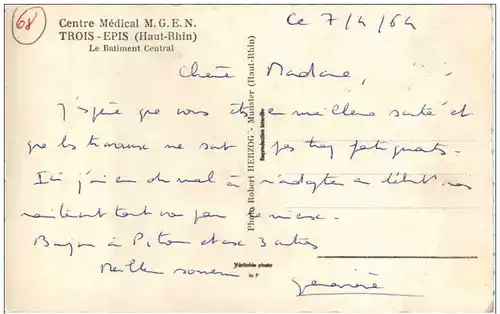 68
Centre Médical M. G. E. N.
TROIS-EPIS (Haut-Rhin)
Le Batiment Central
Ce 7/4/64
Chère Madame,
J'espère que vous êtes en meilleure santé et
que les travaux ne sont pas trop fatigants.
Ici j'ai eu du mal à m'adapter au début mais
maintenant tout va un peu de mieux.
Bonjour à et aux 3 autres
Meilleur souvenir
Geneviève
Photo Robert HERZOG - Munster (Haut-Rhin)
Reproduction interdite
Véritable photo